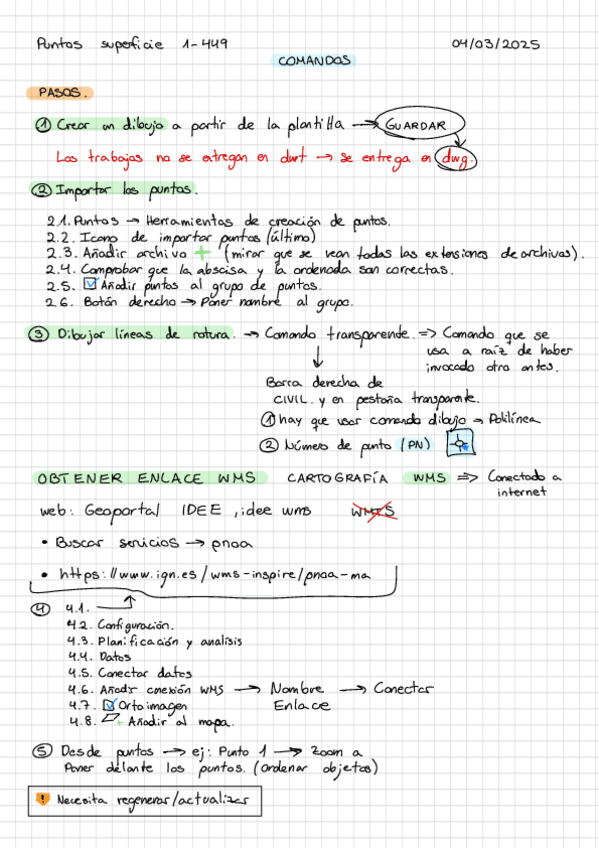 Puntos superficie 1-449 04/03/2025
COMANDOS
PASOS.
① Crear un dibujo a partir de la plantilla → GUARDAR
Los trabajos no se etregan en dwt → se entrega en dwg.
② Importar los puntos.
2.1. Puntos → Herramientas de creación de puntos.
2.2. Icono de importar puntos (último)
2.3. Añadir archivo + (mirar que se vean todas las extensiones de archivos).
2.4. Comprobar que la abscisa y la ordenada son correctas.
2.5. ☑ Añadir puntos al grupo de puntos.
2.6. Botón derecho → Poner nombre al grupo.
③ Dibujar líneas de rotura. → Comando transparente. => Comando que se
usa a raíz de haber
invocado otro antes.
↓
Barra derecha de
CIVIL. y en pestaña transparente.
① hay que usar comando dibujo → Polilínea
② Número de punto (PN)
OBTENER ENLACE WMS CARTOGRAFÍA WMS => Conectado a
internet
web: Geoportal IDEE, idee wms WMTS
• Buscar servicios → pnoa
• https://www.ign.es/wms-inspire/pnoa-ma
④ 4.1.
4.2. Configuración.
4.3. Planificación y analisis
4.4. Datos
4.5. Conectar datos
4.6. Añadir conexión WMS → Nombre → Conectar
Enlace
4.7. ☑ Orto imagen
4.8. + Añadir al mapa.
⑤ Desde puntos → ej: Punto 1 → Zoom a
Poner delante los puntos. (Ordenar objetos)
Necesita regenerar/actualizar